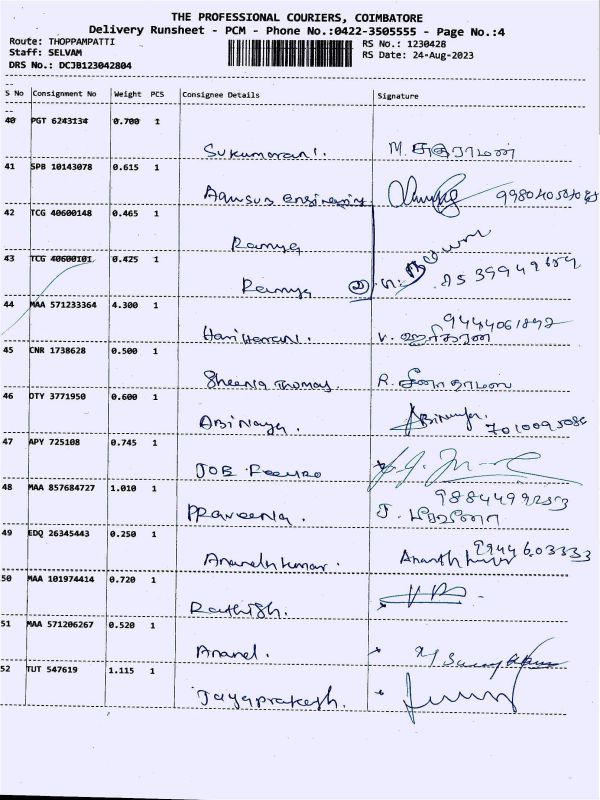 THE PROFESSIONAL COURIERS, COIMBATORE
Delivery Runsheet - PCM - Phone No.:0422-3505555 - Page No.:4
Route: THOPPAMPATTI
RS No.: 1230428
Staff: SELVAM
RS Date: 24-Aug-2023
DRS No.: DCJB123042804
S No Consignment No Weight PCS Consignee Details Signature
40 PGT 6243134 0.700 1
Sukumaran. M. சுகுமாரன்
41 SPB 10143078 0.615 1
Engineering
42 TCG 40600148 0.465 1
Ramya
43 TCG 40600101 0.425 1
Ramya
44 MAA 571233364 4.300 1
Hariharan. V. ஹரிகரன்
45 CNR 1738628 0.500 1
Sheena Thomas. R. சீனா தாமஸ்
46 DTY 3771950 0.600 1
Abinaya. Abinaya.
47 APY 725108 0.745 1
JOB
48 MAA 857684727 1.010 1
Praveena.
49 EDQ 26345443 0.250 1
Anandakumar.
50 MAA 101974414 0.720 1
Rathish.
51 MAA 571206267 0.520 1
Anand.
52 TUT 547619 1.115 1
Jayaprakash.